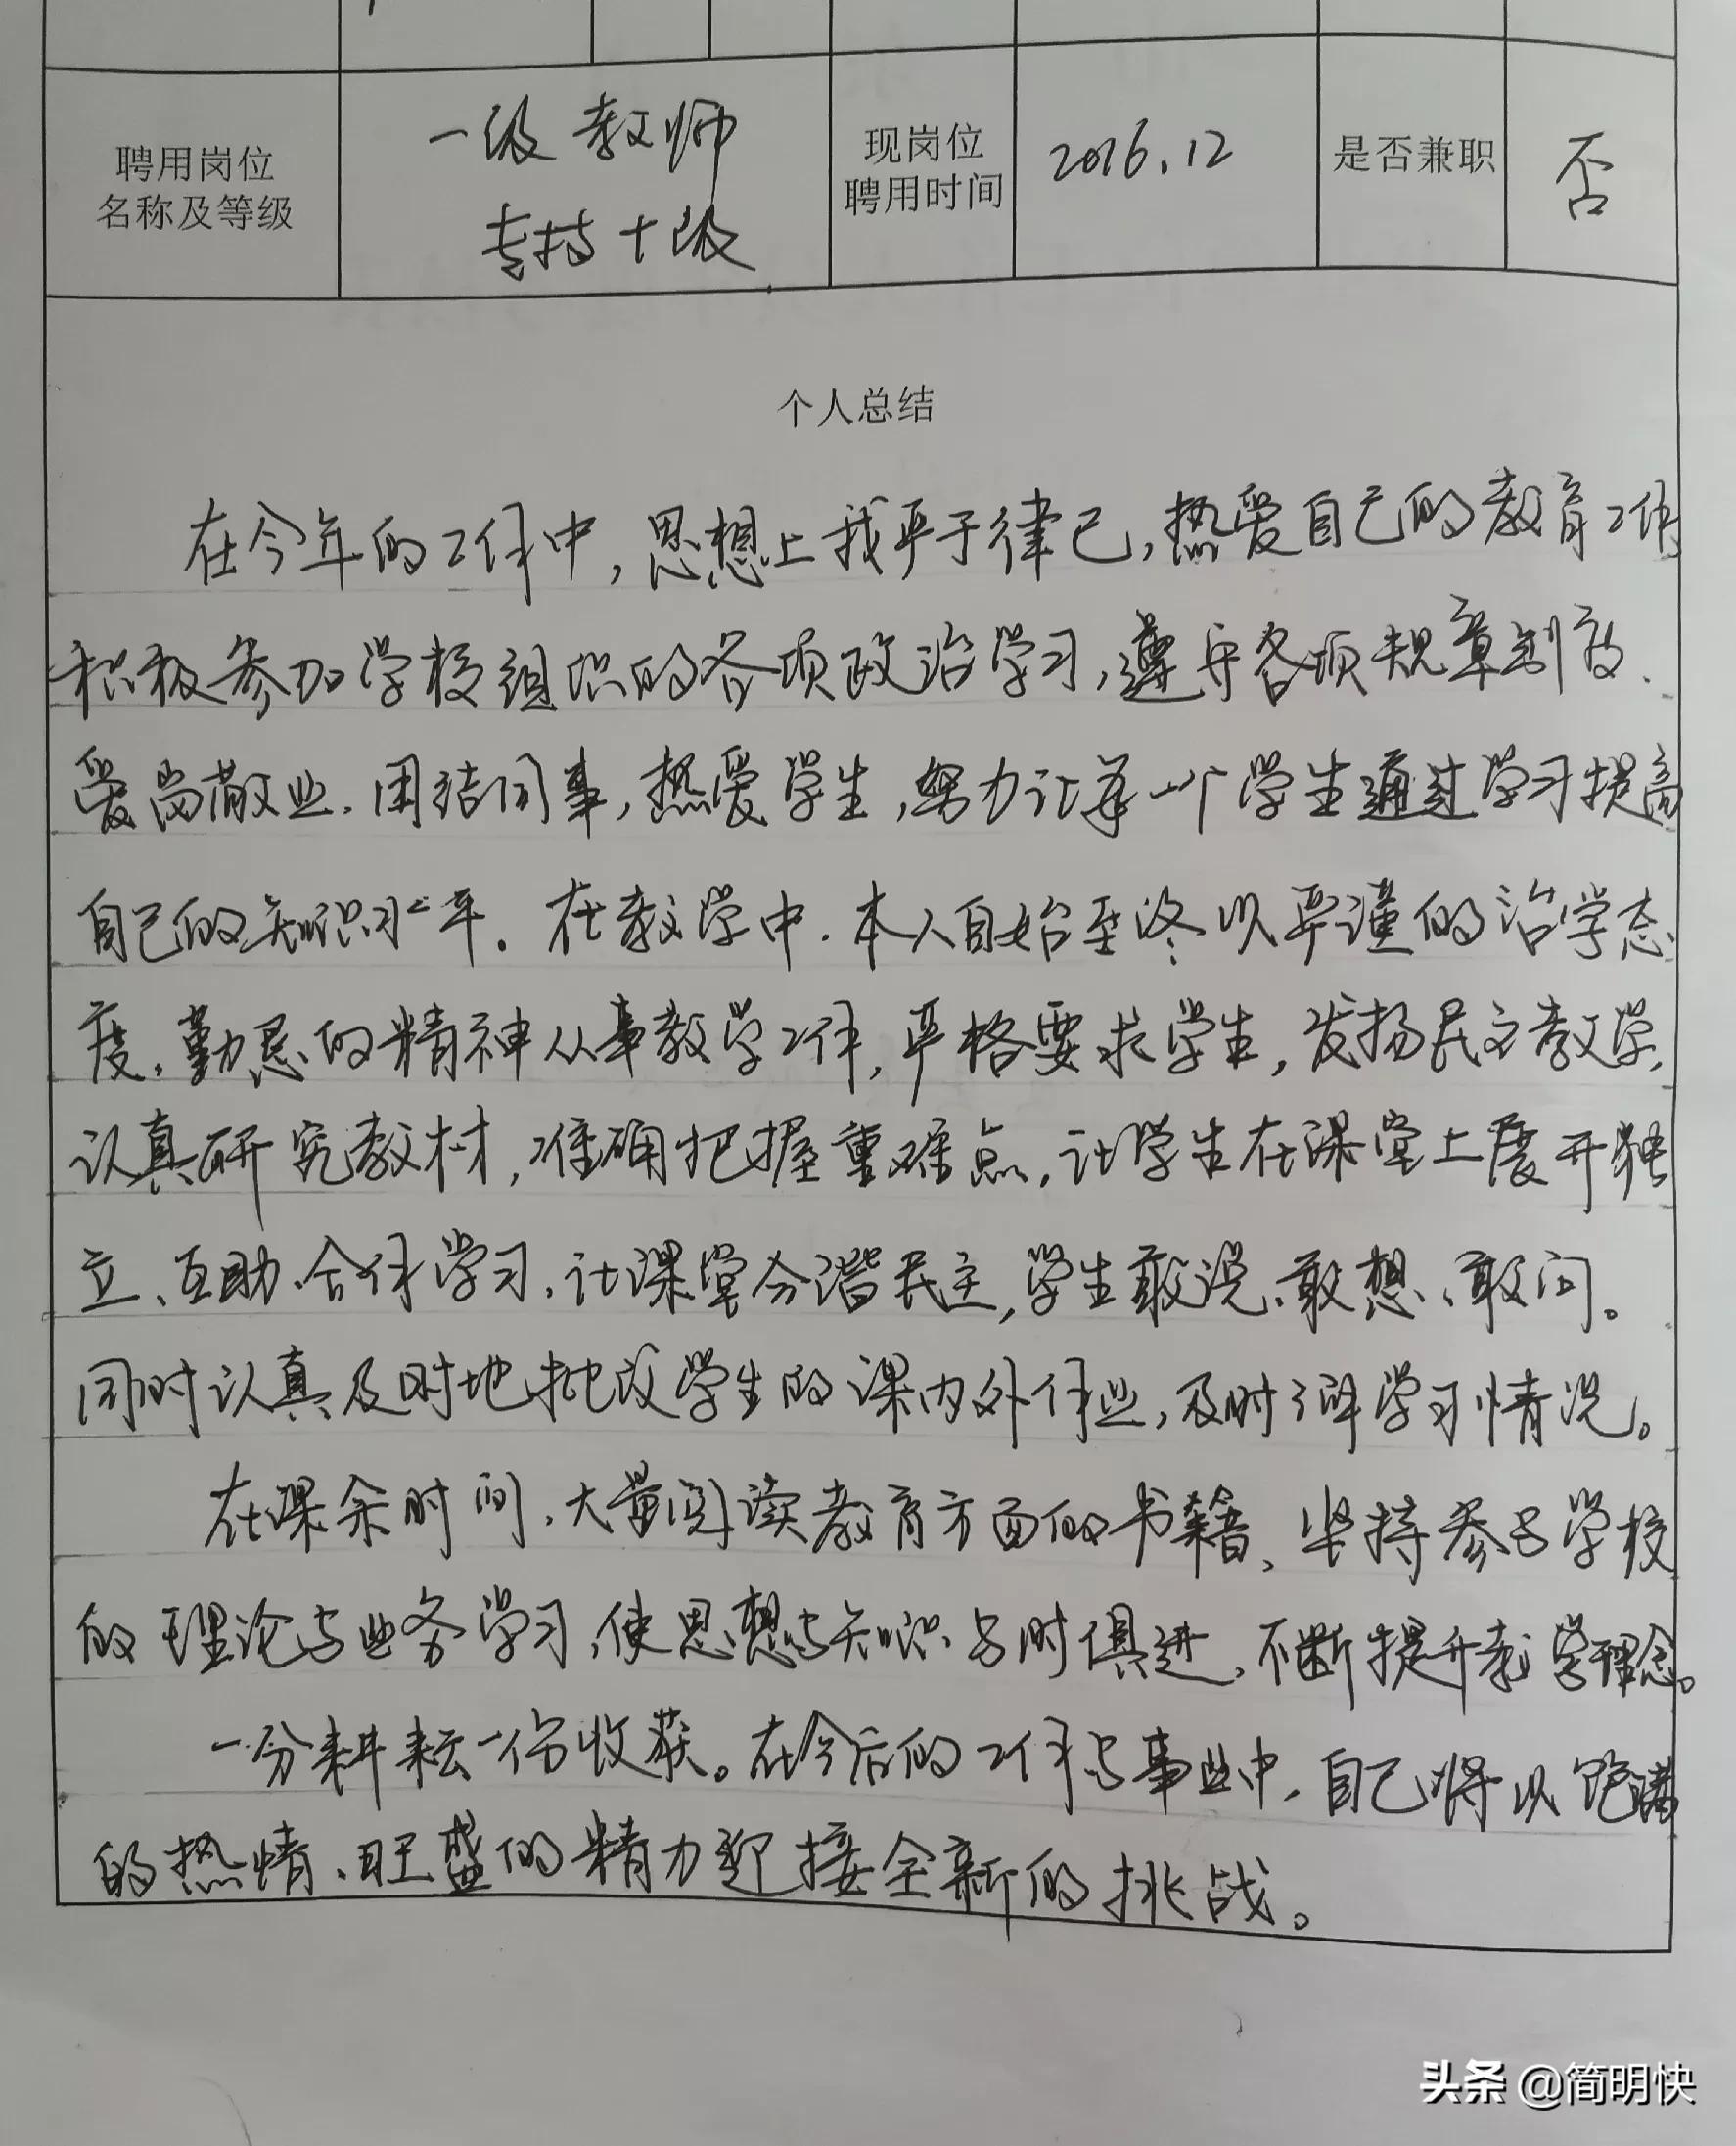 聘用岗位
名称及等级
一级教师
专技十级
现岗位
聘用时间
2016.12
是否兼职
否
个人总结
在今年的工作中，思想上我严于律己，热爱自己的教育工作
积极参加学校组织的各项政治学习，遵守各项规章制度、
爱岗敬业、团结同事，热爱学生，努力让每一个学生通过学习提高
自己的知识水平。在教学中，本人自始至终以严谨的治学态
度，勤恳的精神从事教学工作，严格要求学生，发扬民主教学，
认真研究教材，准确把握重难点，让学生在课堂上展开独
立、互助、合作学习，让课堂分谐民主，学生敢说、敢想、敢问。
同时认真及时地批改学生的课内外作业，及时了解学习情况。
在课余时间，大量阅读教育方面的书籍、坚持参与学校
的理论与业务学习，使思想与知识与时俱进，不断提升教学理念。
一分耕耘一份收获。在今后的工作与事业中，自己将以饱满
的热情、旺盛的精力迎接全新的挑战。
头条 @简明快